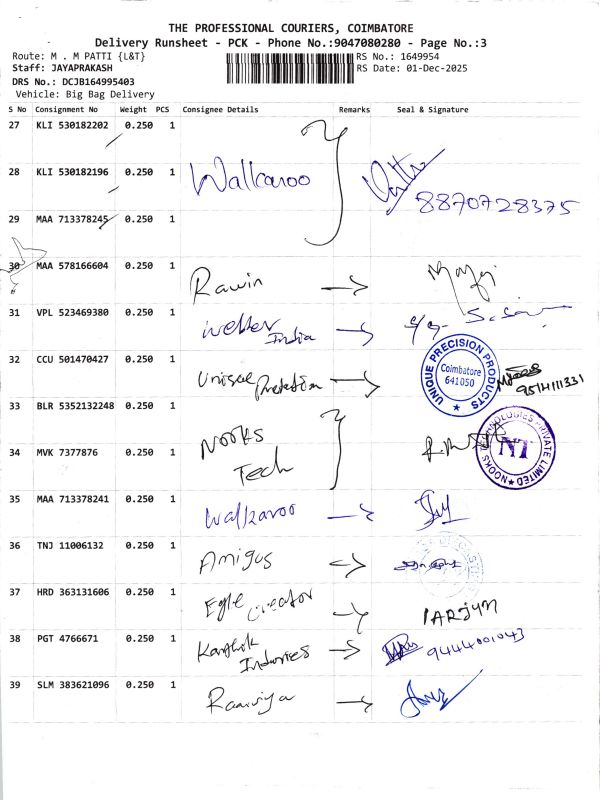 THE PROFESSIONAL COURIERS, COIMBATORE
Delivery Runsheet - PCK - Phone No.:9047080280 - Page No.:3
Route: M . M PATTI {L&T}
RS No.: 1649954
Staff: JAYAPRAKASH
RS Date: 01-Dec-2025
DRS No.: DCJB164995403
Vehicle: Big Bag Delivery
S No Consignment No Weight PCS Consignee Details Remarks Seal & Signature
27 KLI 530182202 0.250 1
28 KLI 530182196 0.250 1 Walkaroo
8870728375
29 MAA 713378245 0.250 1
30 MAA 578166604 0.250 1 Rawin
31 VPL 523469380 0.250 1 India
32 CCU 501470427 0.250 1 Unique
UNIQUE PRECISION PRODUCTS
Coimbatore
641050
9514111331
33 BLR 5352132248 0.250 1 Nooks
34 MVK 7377876 0.250 1 Tech
NOOKS TECHNOLOGIES PRIVATE LIMITED
NT
35 MAA 713378241 0.250 1 Walkaroo
36 TNJ 11006132 0.250 1 Amigos
37 HRD 363131606 0.250 1 Creator
38 PGT 4766671 0.250 1 Industries 9444001043
39 SLM 383621096 0.250 1